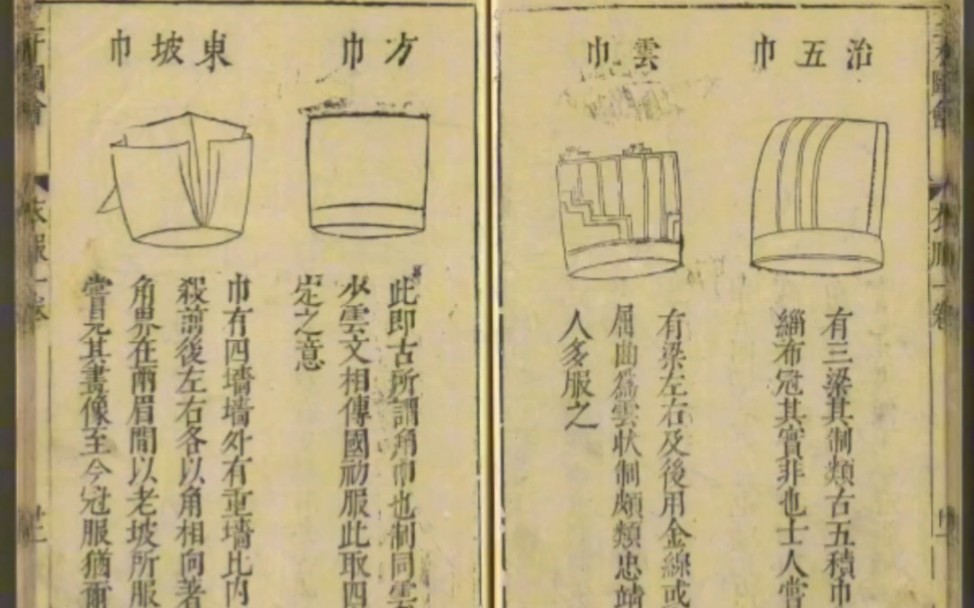 治五巾
有三梁其制類古五積巾
緇布冠其實非也士人嘗
雲巾
有梁左右及後用金線或
屈曲為雲狀制頗類忠靖
人多服之
方巾
此即古所謂角巾也制同雲
少雲文相傳國初服此取四
定之意
東坡巾
巾有四墻墻外有重墻比內
殺前後左右各以角相向著
角界在兩眉間以老坡所服
嘗見其畫像至今冠服猶爾
衣服一卷